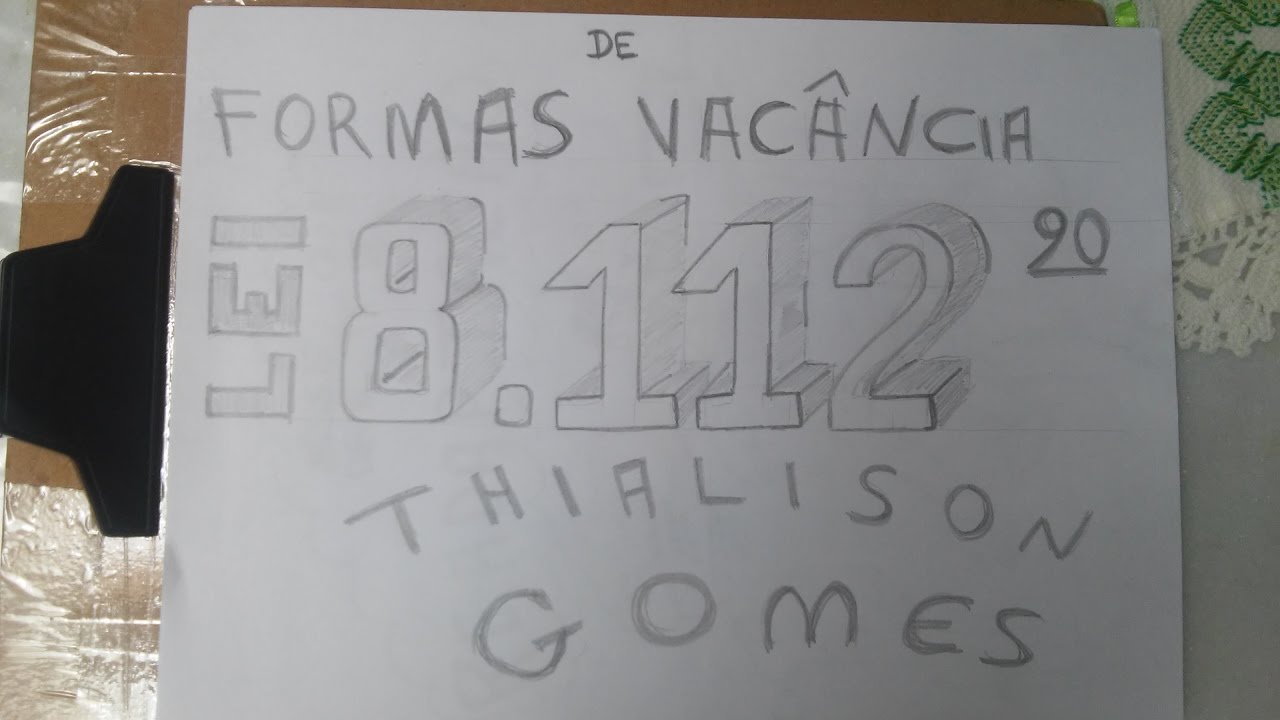 DE
FORMAS VACÂNCIA
LEI 8.112 90
THIALISON
GOMES